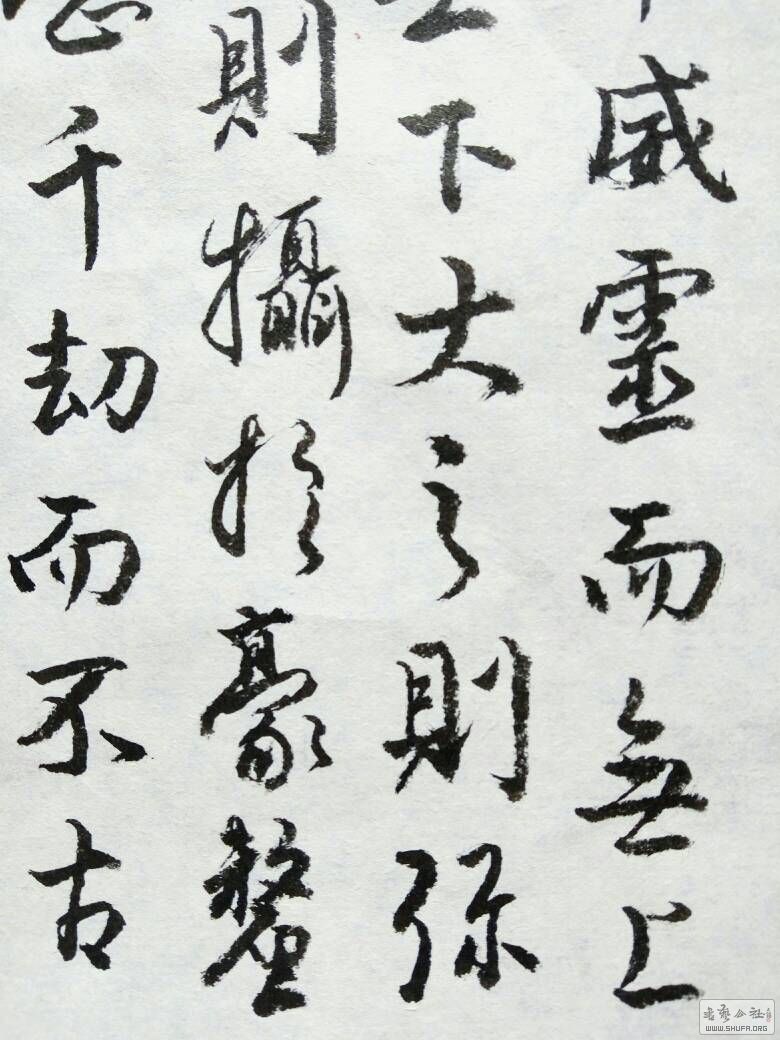 威靈而無上
下大之則弥
則攝於豪釐
千劫而不古
書藝公社
WWW.SHUFA.ORG